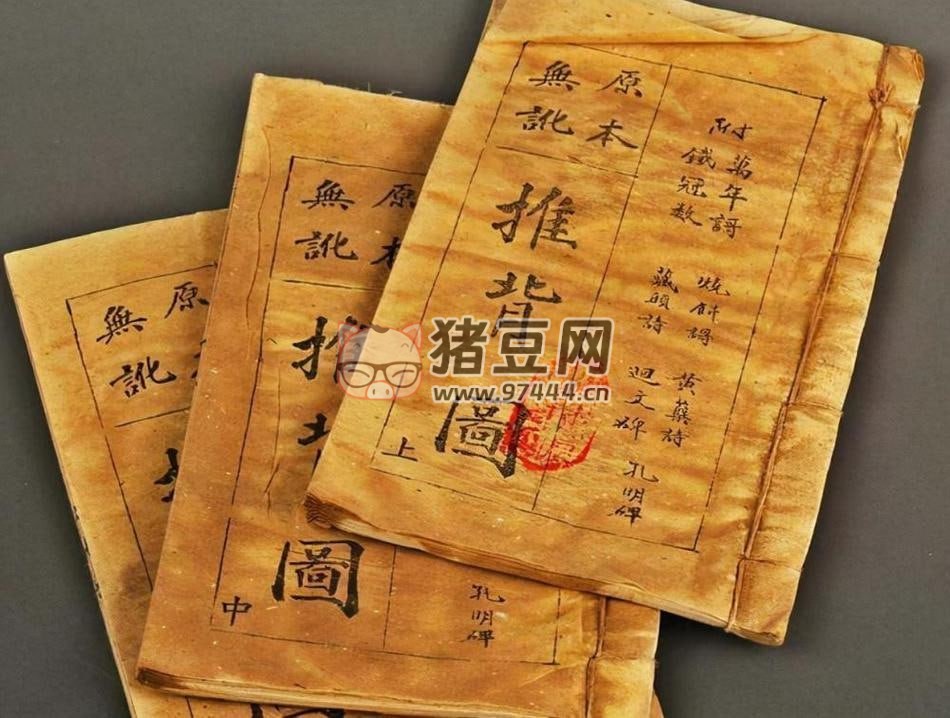 附
萬年謌
鐵冠数
燒餅謌
藏頭詩
黃蘗詩
迴文碑
孔明碑
原本
無訛
推背圖
上
原本
無訛
推
圖
中
孔明碑
原
無訛
猪豆网
www.97444.cn